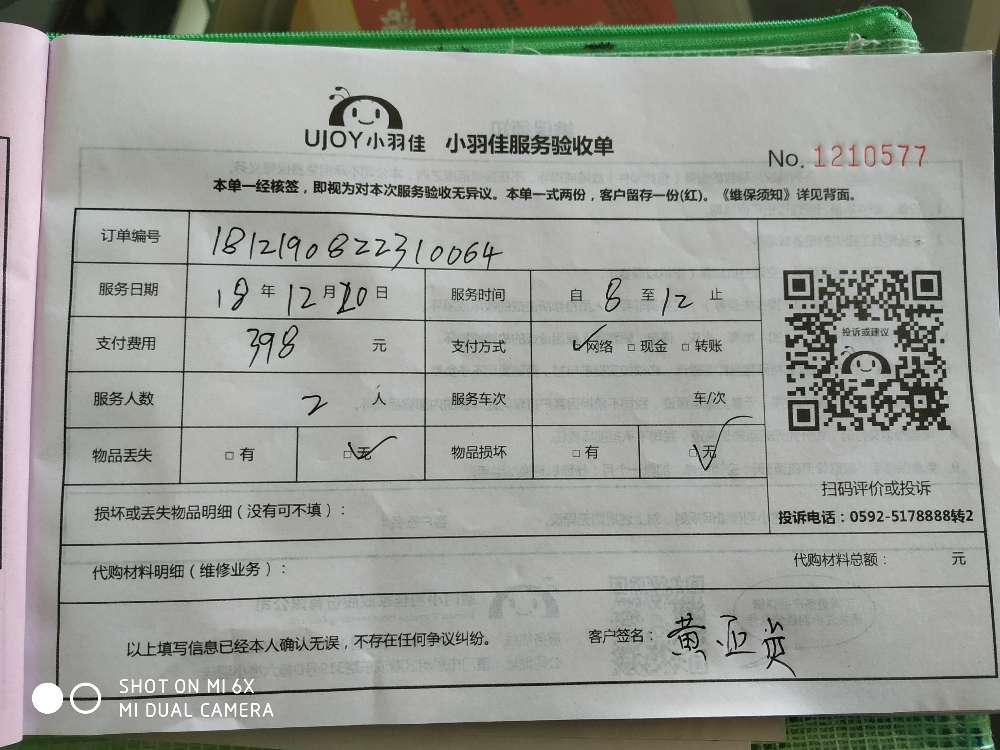 UJOY小羽佳 小羽佳服务验收单
No. 1210577
本单一经核签，即视为对本次服务验收无异议。本单一式两份，客户留存一份(红)。《维保须知》详见背面。
订单编号 1812190822310064
服务日期 18 年 12 月 20 日 服务时间 自 8 至 12 止
支付费用 398 元 支付方式 ☑网络 □现金 □转账
服务人数 2 人 服务车次 车/次
物品丢失 □有 ☑无 物品损坏 □有 ☑无
投诉或建议
扫码评价或投诉
投诉电话：0592-5178888转2
损坏或丢失物品明细（没有可不填）：
代购材料明细（维修业务）： 代购材料总额： 元
以上填写信息已经本人确认无误，不存在任何争议纠纷。 客户签名：黄亚
SHOT ON MI 6X
MI DUAL CAMERA